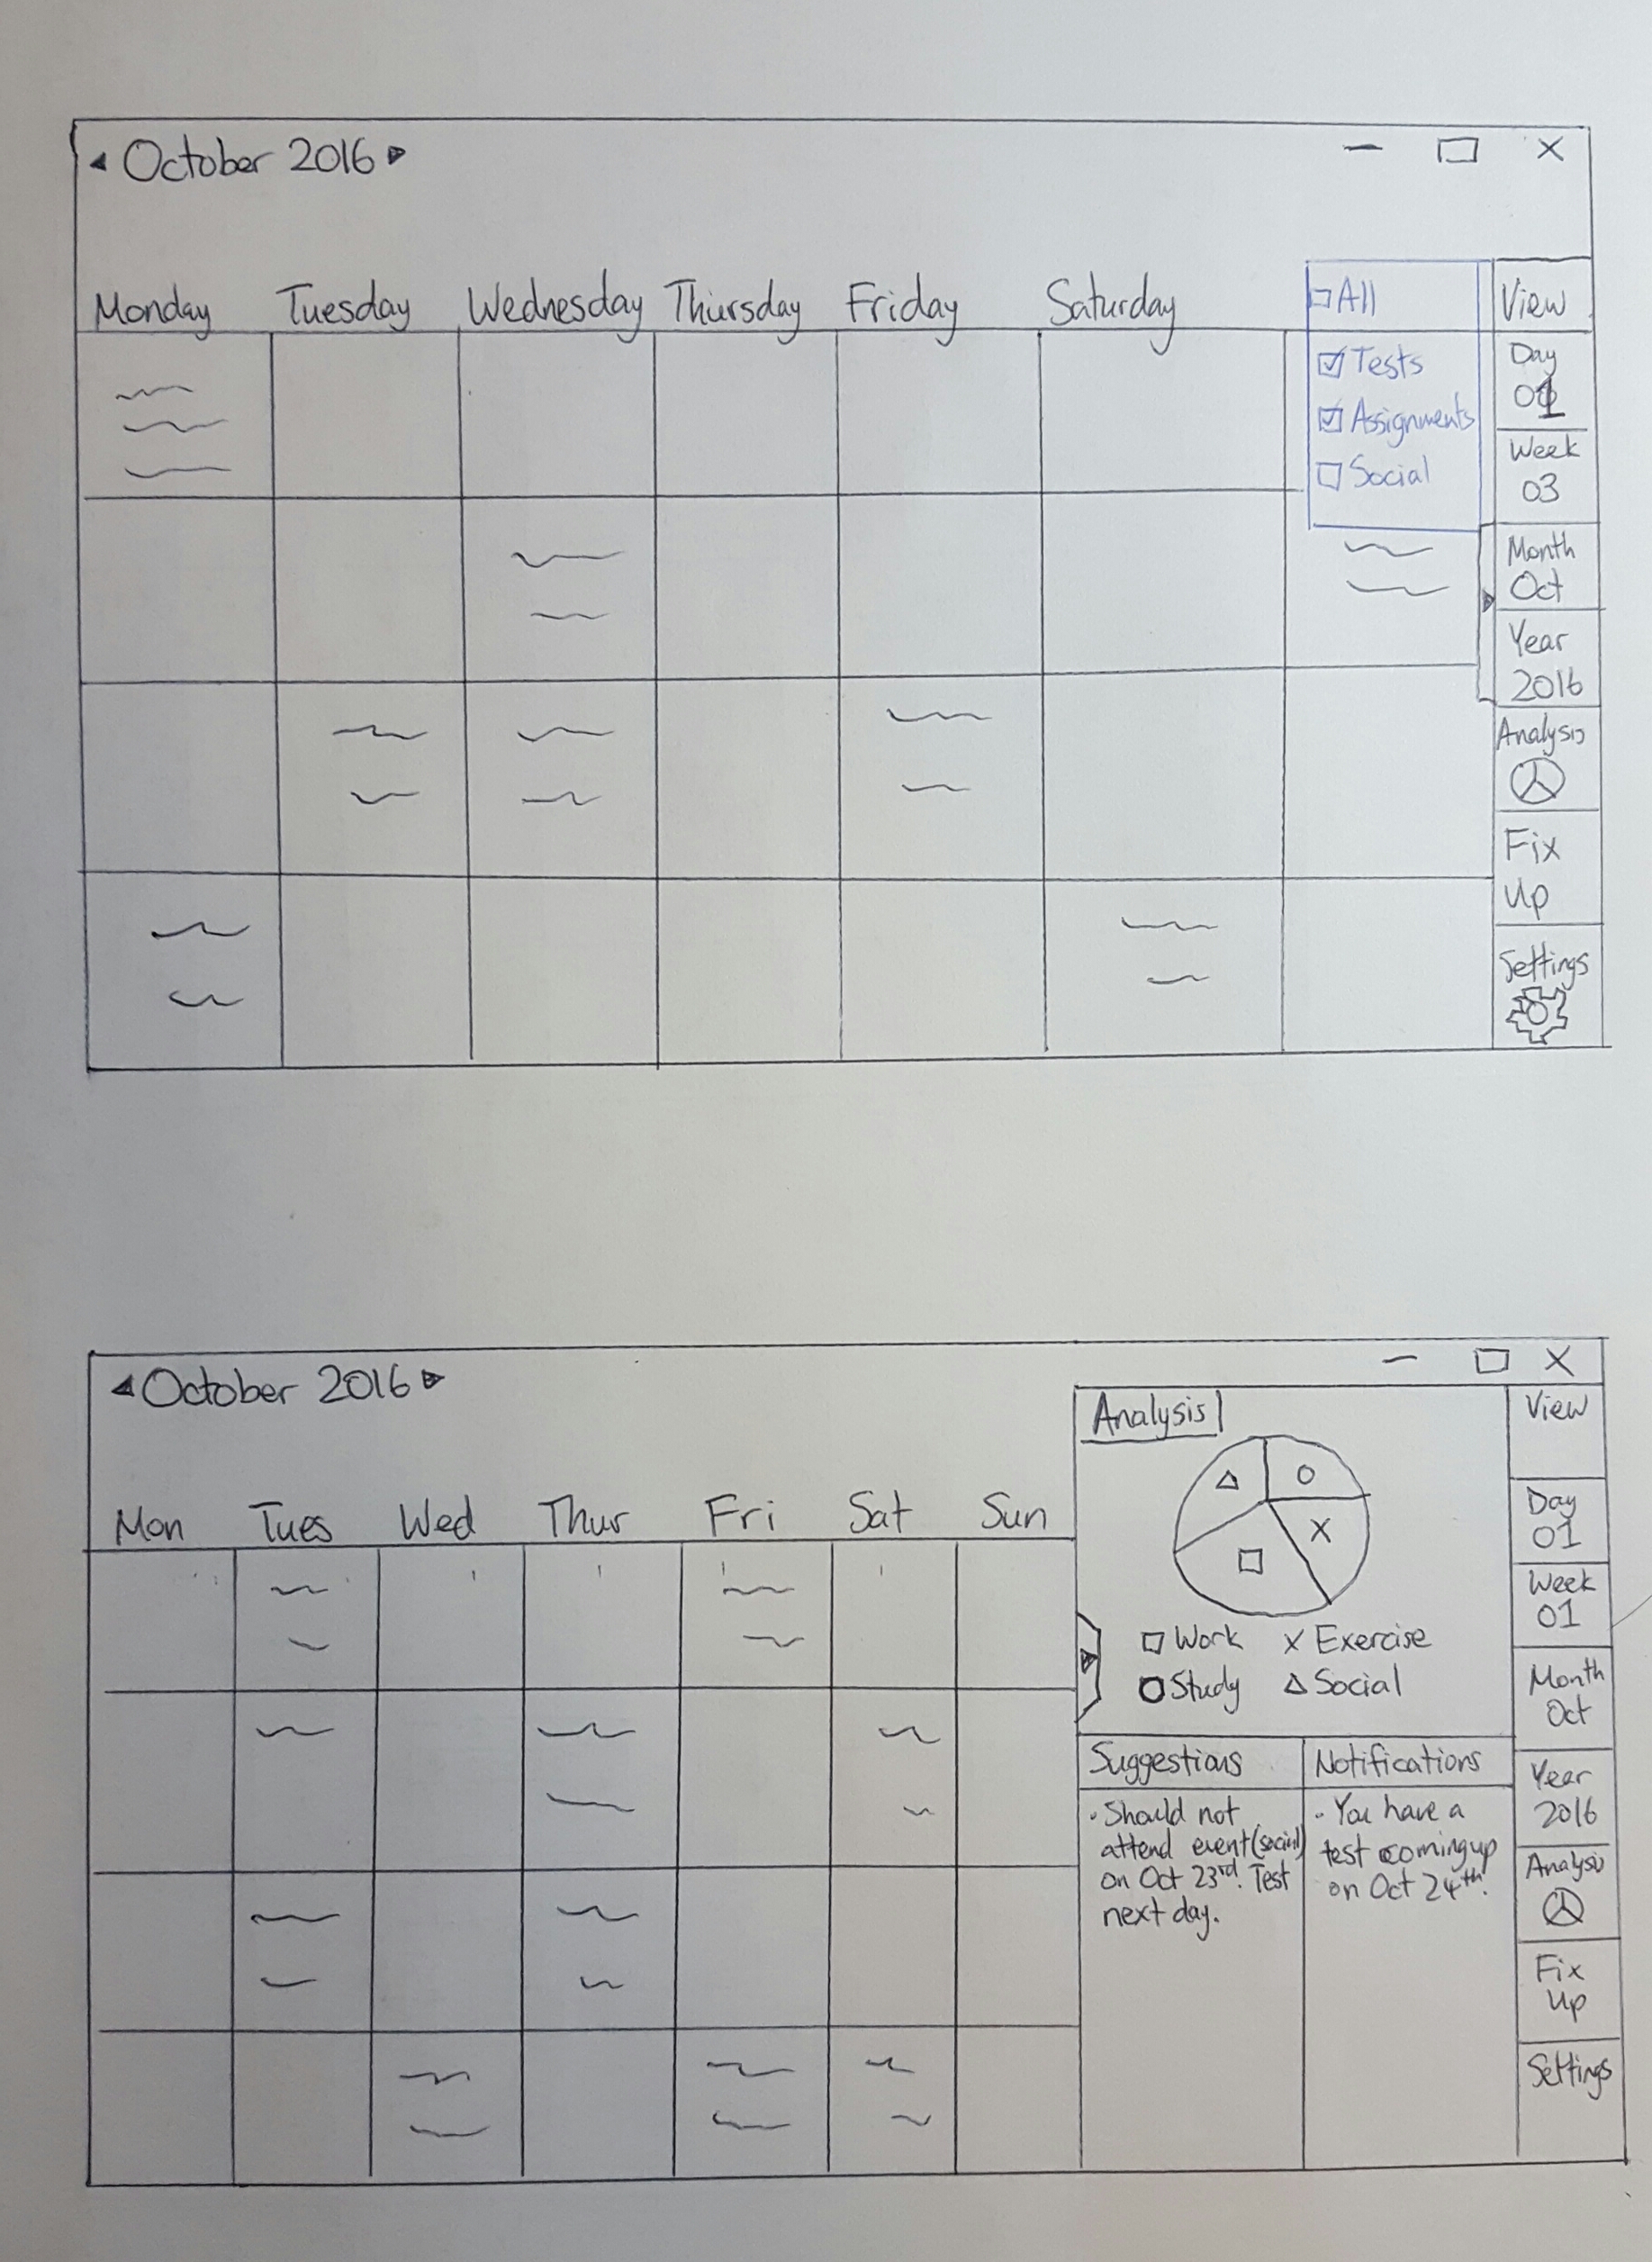 October 2016
Monday Tuesday Wednesday Thursday Friday Saturday
All
Tests
Assignments
Social
View
Day
01
Week
03
Month
Oct
Year
2016
Analysis
Fix
Up
Settings
October 2016
Mon Tues Wed Thur Fri Sat Sun
Analysis
Work X Exercise
Study Social
Suggestions
• Should not
attend event (social)
on Oct 23rd. Test
next day.
Notifications
• You have a
test coming up
on Oct 24th.
View
Day
01
Week
01
Month
Oct
Year
2016
Analysis
Fix
Up
Settings